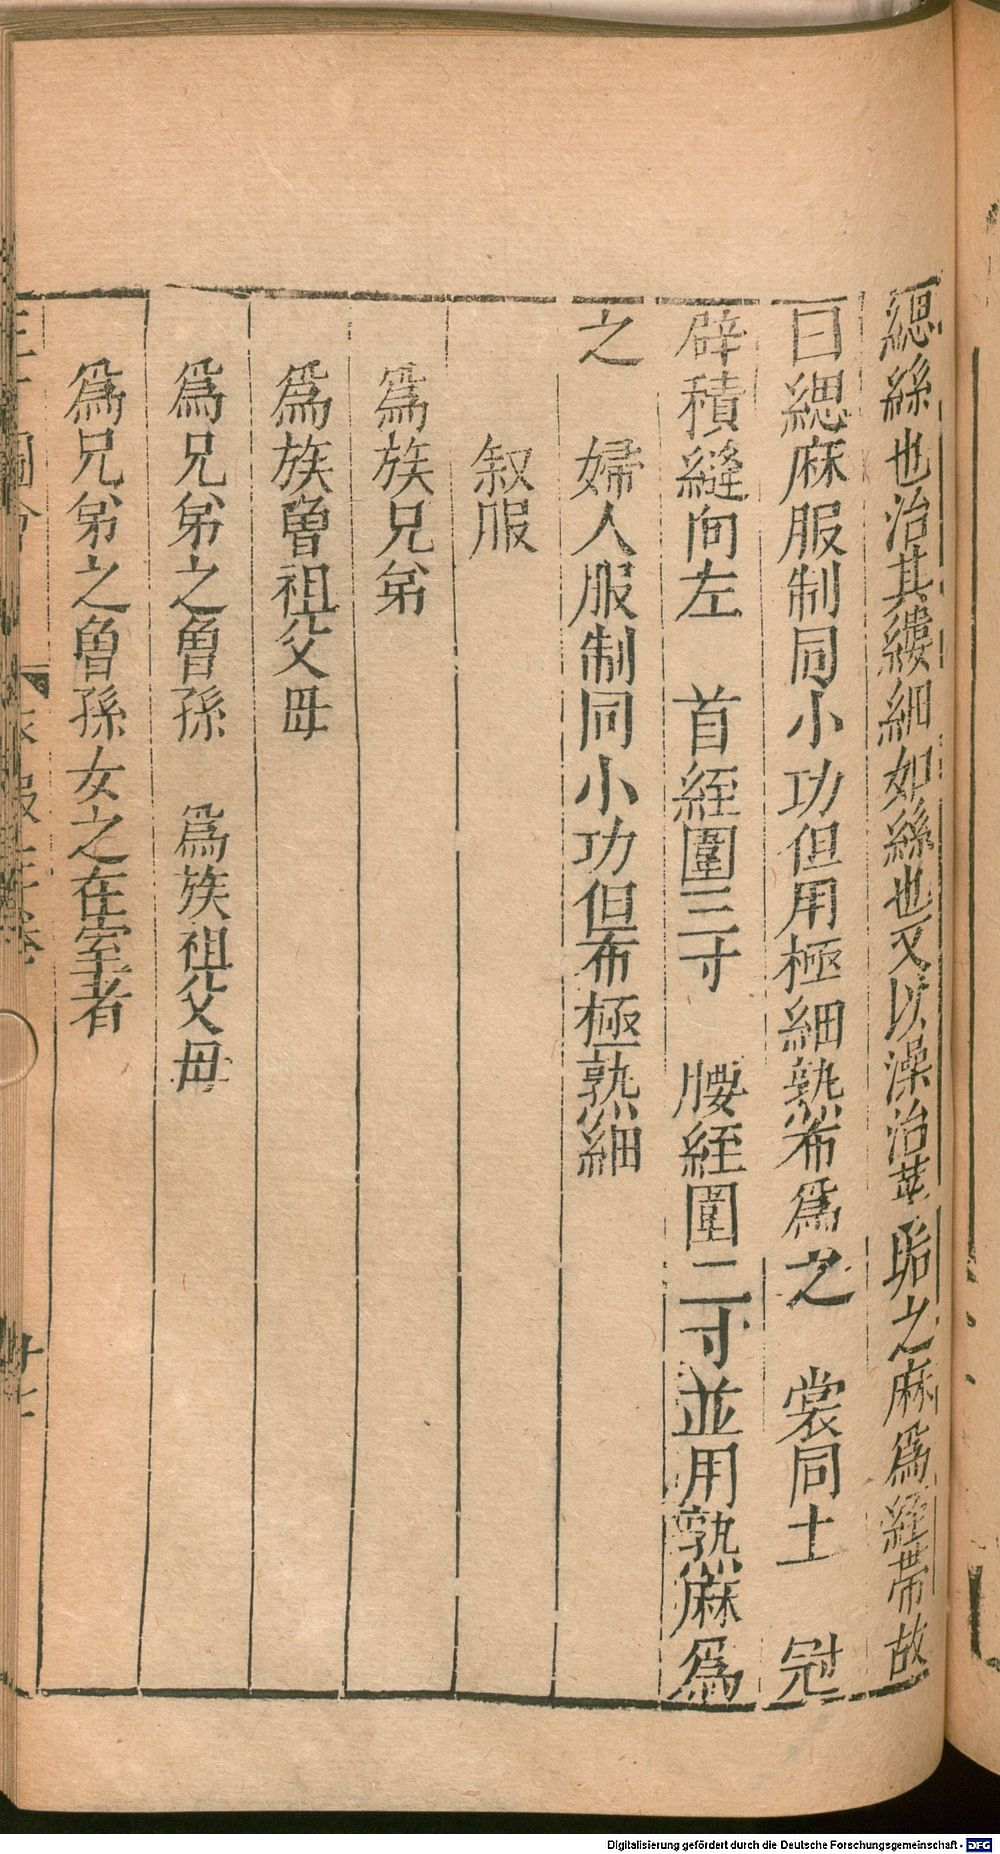 緦絲也治其縷細如絲也又以澡治莩垢之麻爲絰帶故
曰緦麻服制同小功但用極細熟布爲之　裳同上　冠
辟積縫向左　首絰圍三寸　腰絰圍二寸並用熟麻爲
之　婦人服制同小功但布極熟細
叙服
爲族兄弟
爲族曾祖父母
爲兄弟之曾孫　爲族祖父母
爲兄弟之曾孫女之在室者
三才圖會　衣服三卷　廿七
Digitalisierung gefördert durch die Deutsche Forschungsgemeinschaft - DFG